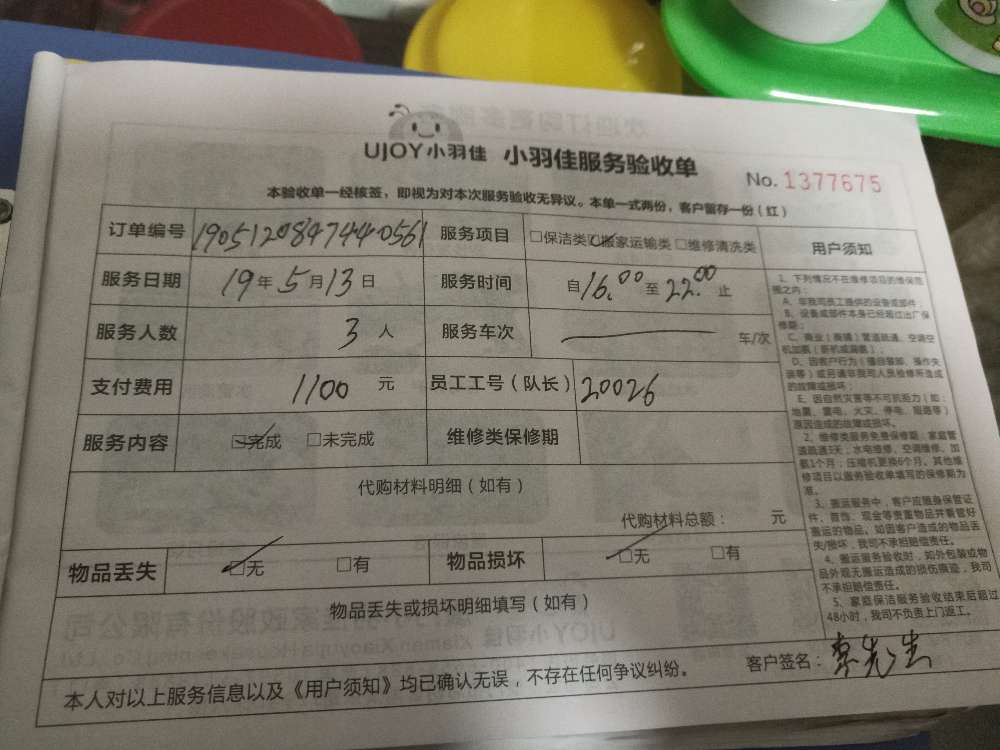 UJOY小羽佳 小羽佳服务验收单
No. 1377675
本验收单一经核签，即视为对本次服务验收无异议。本单一式两份，客户留存一份（红）
订单编号 1905120847440561 服务项目 □保洁类 ☑搬家运输类 □维修清洗类
服务日期 19年5月13日 服务时间 自16:00至22:00止
服务人数 3人 服务车次 车/次
支付费用 1100元 员工工号（队长） 20026
服务内容 ☑完成 □未完成 维修类保修期
代购材料明细（如有）
代购材料总额： 元
物品丢失 ☑无 □有 物品损坏 ☑无 □有
物品丢失或损坏明细填写（如有）
本人对以上服务信息以及《用户须知》均已确认无误，不存在任何争议纠纷。
客户签名： 先生
用户须知
1、下列情况不在维修项目的维保范
围之内：
A、非我司员工提供的设备或部件；
B、设备或部件本身已经超过出厂保
修期；
C、商业（商铺）管道疏通、空调空
机加氨（新机或漏氨）；
D、因客户行为（擅自装卸、操作失
误等）或另请非我司人员检修所造成
的故障或损坏；
E、因自然灾害等不可抗拒力（如：
地震、雷电、火灾、停电、阻路等）
原因造成的故障或损坏。
2、维修类服务免费保修期：家庭管
道疏通3天；水电维修、空调维修、加
氨1个月；压缩机更换6个月。其他维
修项目以服务验收单填写的保修期为
准。
3、搬运服务中，客户应随身保管证
件、首饰、现金等贵重物品并看管好
搬运的物品。如因客户造成的物品丢
失/损坏，我司不承担赔偿责任。
4、搬运服务验收时，如外包装或物
品外观无搬运造成的损伤痕迹，我司
不承担赔偿责任。
5、家庭保洁服务验收结束后超过
48小时，我司不负责上门返工。